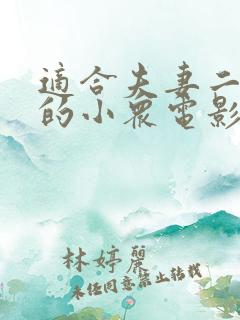 適合夫妻二
的小眾電影
林婷麗
未经同意禁止转载